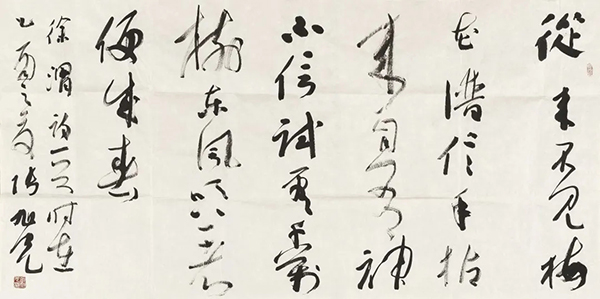 從来不見梅
花譜信手拈
来自有神
不信試看千萬
樹東風吹著
便成春
徐渭詩一首时在
乙酉之張旭光